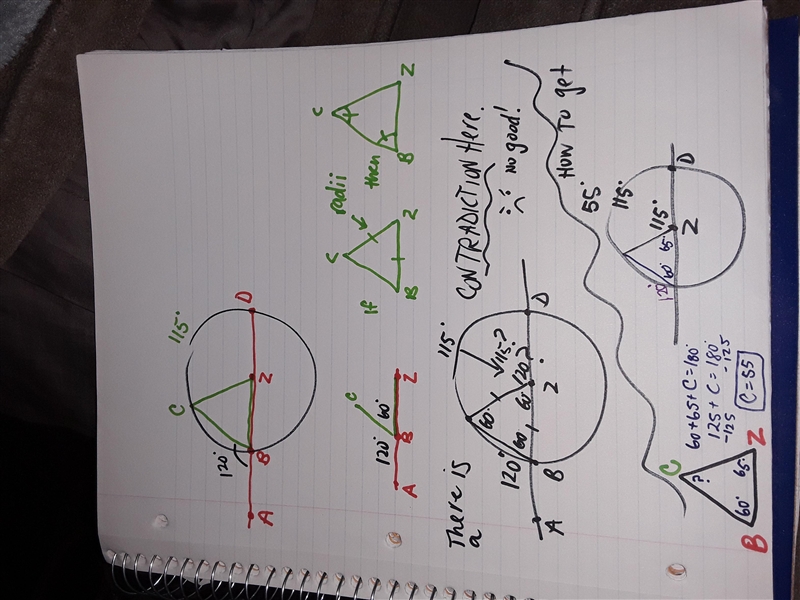 C 115°
120°
A B Z D
C
120° 60°
A B Z
If C radii then C
B Z B Z
There is a CONTRADICTION Here.
No good!
115°
60° 115?
120° 60 60 120?
A B Z D
How To get 55°
115°
115°
120° 60° 65°
Z D
C
?
60° 65°
B Z
60+65+C=180°
125+C=180°
-125 -125
C=55